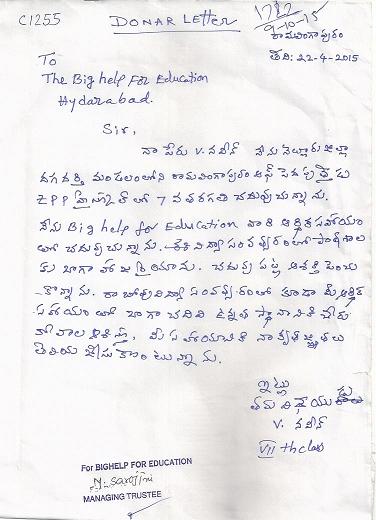 C1255
DONAR Letter
1722
9-10-15
రామలింగాపురం
తేది: 22-4-2015
To
The Big help For Education
Hyderabad.
Sir,
నా పేరు V. నవీన్ నేను నెల్లూరు జిల్లా
దగదర్తి మండలంలోని రామలింగాపురం
ZPP హైస్కూల్ లో 7 వ తరగతి చదువుచున్నాను.
నేను Big help for Education వారి ఆర్థిక సహాయం
తో చదువుచున్నాను. విద్యా సంవత్సరంలో పాఠశాల
కు బాగా హాజరైయాను. చదువు పట్ల ఆశక్తి పెంచు
-కొన్నాను. రాబోవు విద్యా సంవత్సరంలో కూడా మీ ఆర్థిక
సహాయంతో బాగా చదివి ఉన్నత స్థానానికి చేరు
కోవాలని, మీ సహాయానికి నా కృతజ్ఞతలు
తెలియజేసుకుంటున్నాను.
ఇట్లు
తమ విధేయుడు
V. నవీన్
VII th class
For BIGHELP FOR EDUCATION
N. Sarojini
MANAGING TRUSTEE